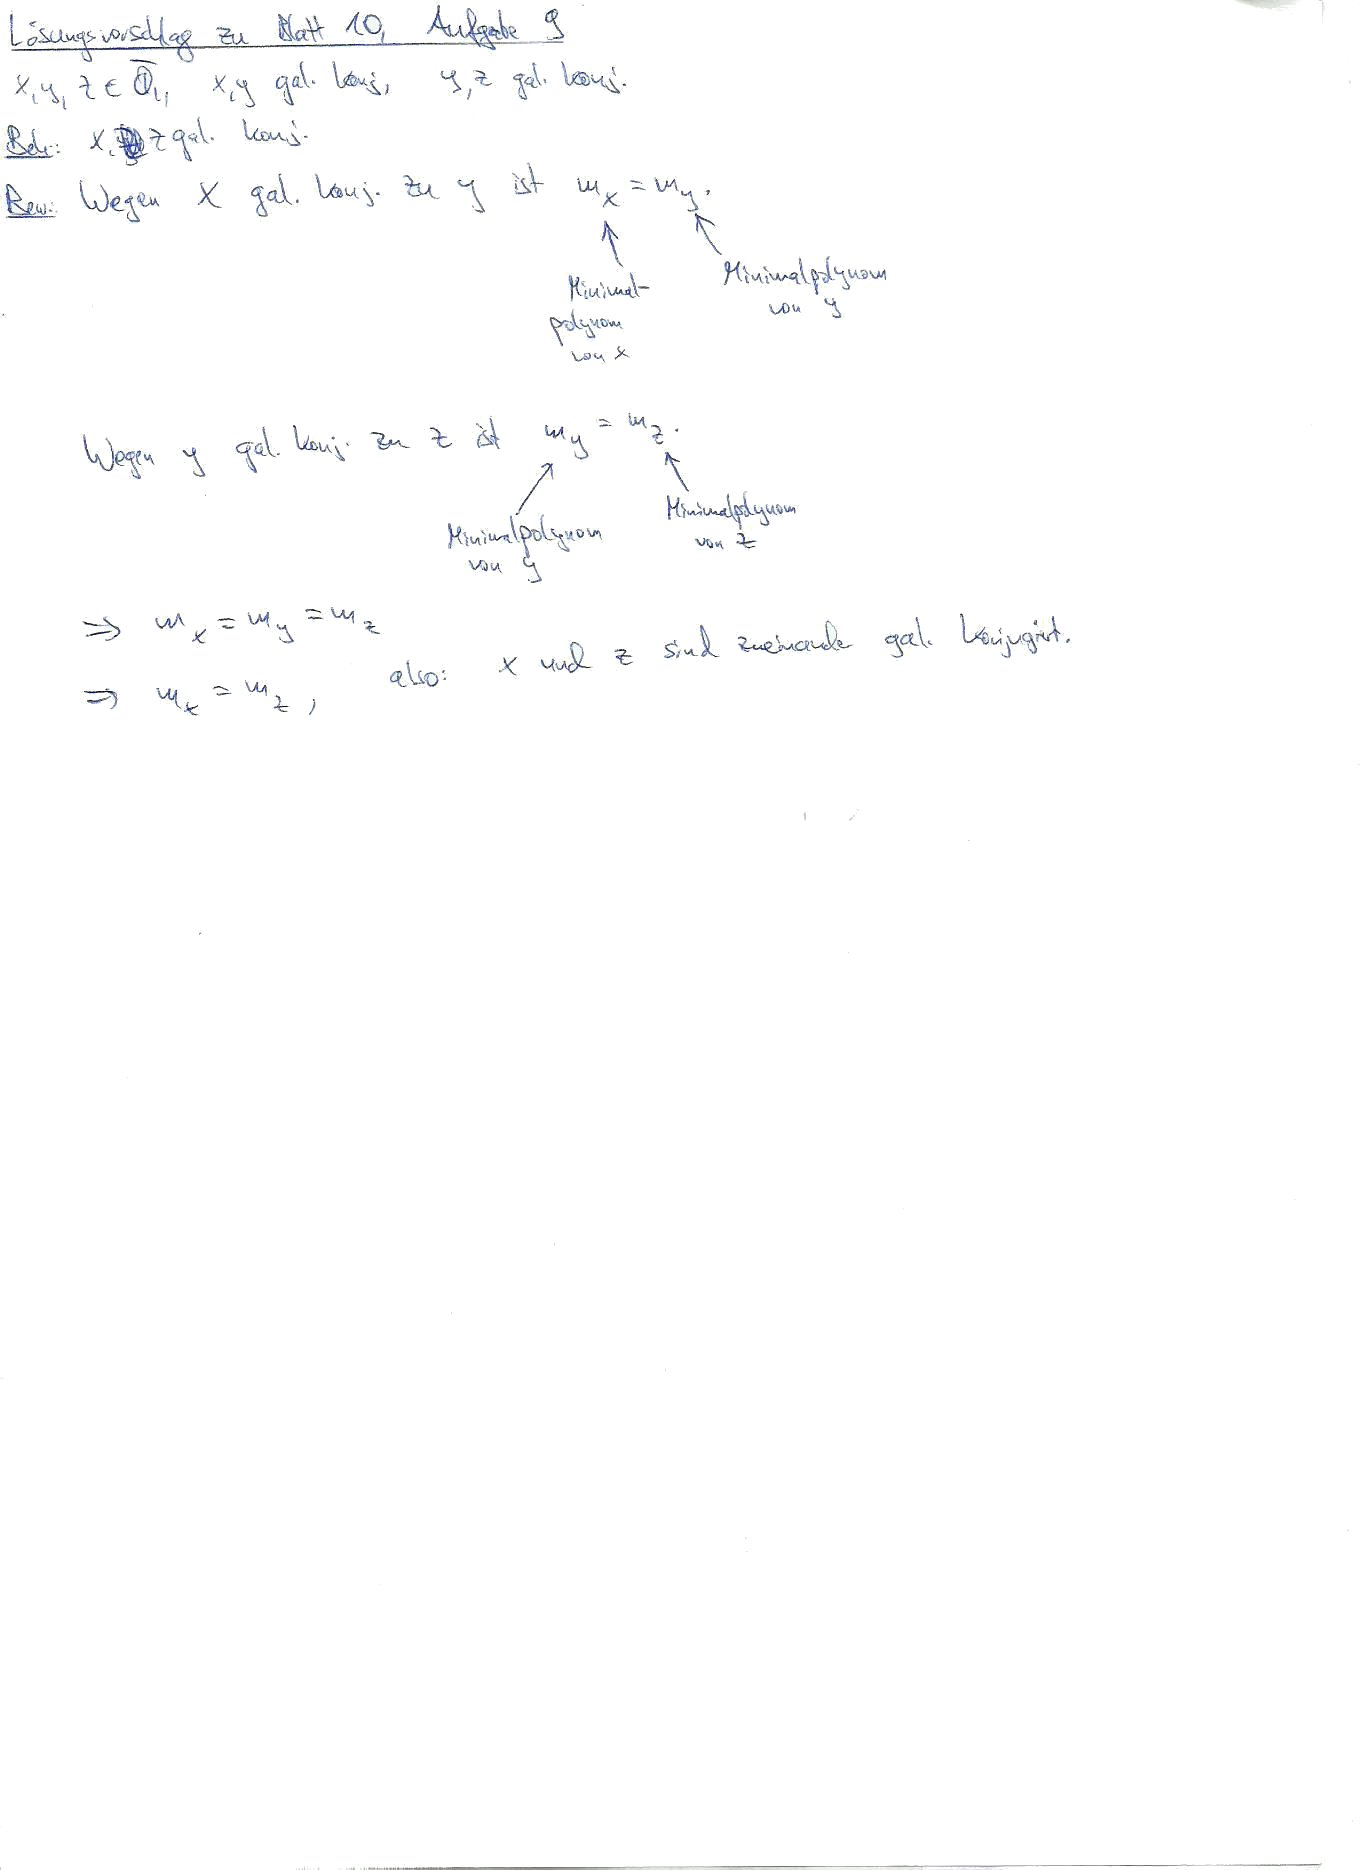 Lösungsvorschlag zu Blatt 10, Aufgabe 9
x, y, z ∈ Q̅, x, y gal. konj., y, z gal. konj.
Beh.: x, z gal. konj.
Bew.: Wegen x gal. konj. zu y ist m_x = m_y.
Minimal-
polynom
von x
Minimalpolynom
von y
Wegen y gal. konj. zu z ist m_y = m_z.
Minimalpolynom
von y
Minimalpolynom
von z
⇒ m_x = m_y = m_z
⇒ m_x = m_z, also: x und z sind zueinande gal. konjugirt.